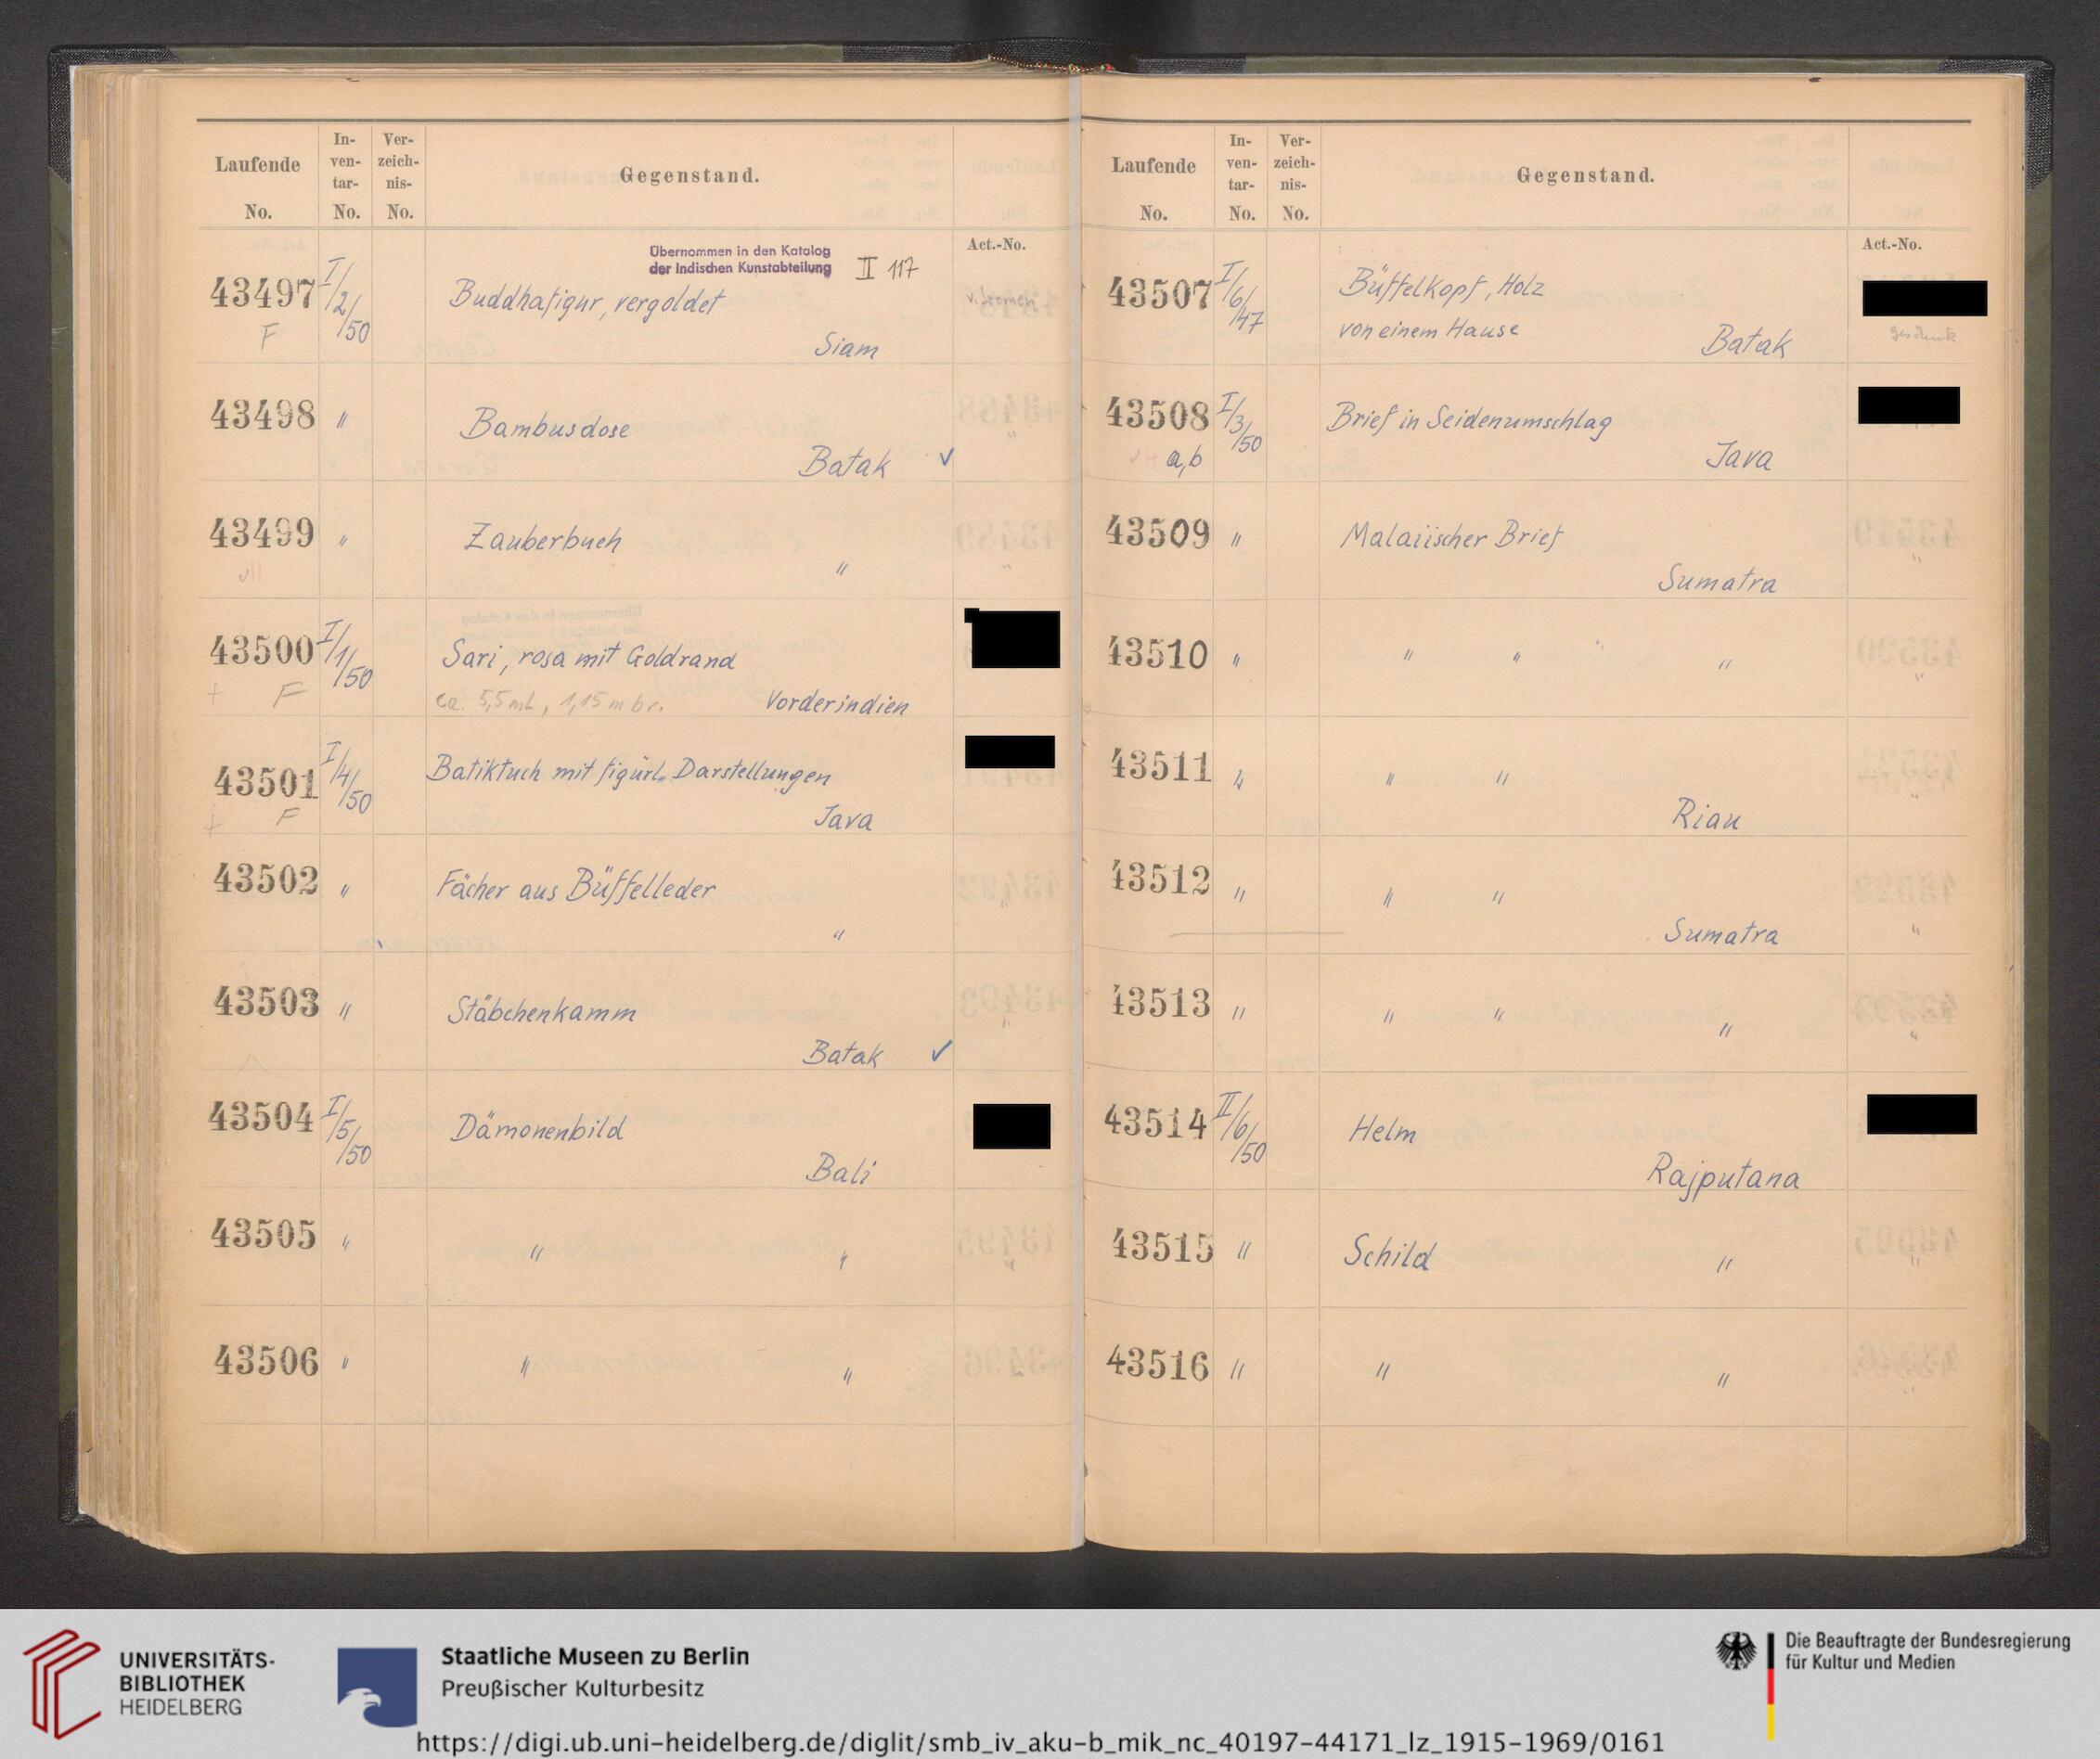 Laufende No.
In-ven-tar-No.
Ver-zeich-nis-No.
Gegenstand.
Act.-No.
Übernommen in den Katalog
der Indischen Kunstabteilung II 117
43497 I/2/50 Buddhafigur, vergoldet
F Siam
43498 " Bambusdose
Batak ✓
43499 " Zauberbuch
"
43500 I/1/50 Sari, rosa mit Goldrand
+ F ca. 5,5 m L, 1,15 m br. Vorderindien
43501 I/4/50 Batiktuch mit figürl. Darstellungen
+ F Java
43502 " Fächer aus Büffelleder
"
43503 " Stäbchenkamm
Batak ✓
43504 I/5/50 Dämonenbild
Bali
43505 " " "
43506 " " "
Laufende No.
In-ven-tar-No.
Ver-zeich-nis-No.
Gegenstand.
Act.-No.
43507 I/6/47 Büffelkopf, Holz
von einem Hause Batak geschenk
43508 I/3/50 Brief in Seidenumschlag
a,b Java
43509 " Malaiischer Brief
Sumatra
43510 " " " "
43511 " " "
Riau
43512 " " "
Sumatra
43513 " " " "
43514 II/6/50 Helm
Rajputana
43515 " Schild "
43516 " " "
UNIVERSITÄTS-
BIBLIOTHEK
HEIDELBERG
Staatliche Museen zu Berlin
Preußischer Kulturbesitz
Die Beauftragte der Bundesregierung
für Kultur und Medien
https://digi.ub.uni-heidelberg.de/diglit/smb_iv_aku-b_mik_nc_40197-44171_lz_1915-1969/0161